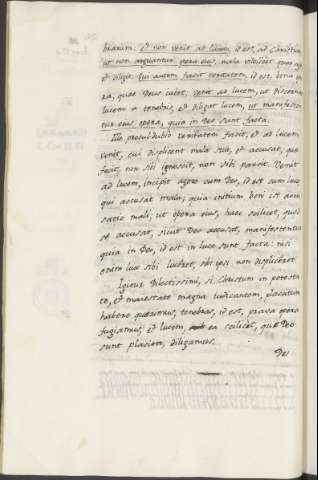 brarum. Et non venit ad lucem, id est, ad Christum
ut non arguantur opera eius, mala videlicet quae agit
et diligit. Qui autem facit veritatem, id est, bona ope
ra, quae Deus iubet, venit ad lucem, ut discernat
lucem a tenebris, et diligat lucem, ut manifesten
tur eius opera, quia in Deo sunt facta.
Ille proculdubio veritatem facit, et ad lucem
venit, cui displicent mala sua, et accusat, quae
fecit, non sibi ignoscit, non sibi parcit. Venit
ad lucem, incipit agere cum Deo, id est cum luce
qui accusat mala, quia initium boni est accu
satio mali; ut opera eius, haec scilicet, quod
se accusat, sicut Deus accusat, manifestentur
quia in Deo, id est in luce sunt facta: nisi
enim lux sibi luceret, sibi ipsi non displiceret.
Igitur Dilectissimi, si Christum in potesta
te, et maiestate magna iudicantem, placatum
habere quaerimus, tenebras, id est, prava opera
fugiamus, et lucem, ea scilicet, quae Deo
sunt placita, diligamus.
De